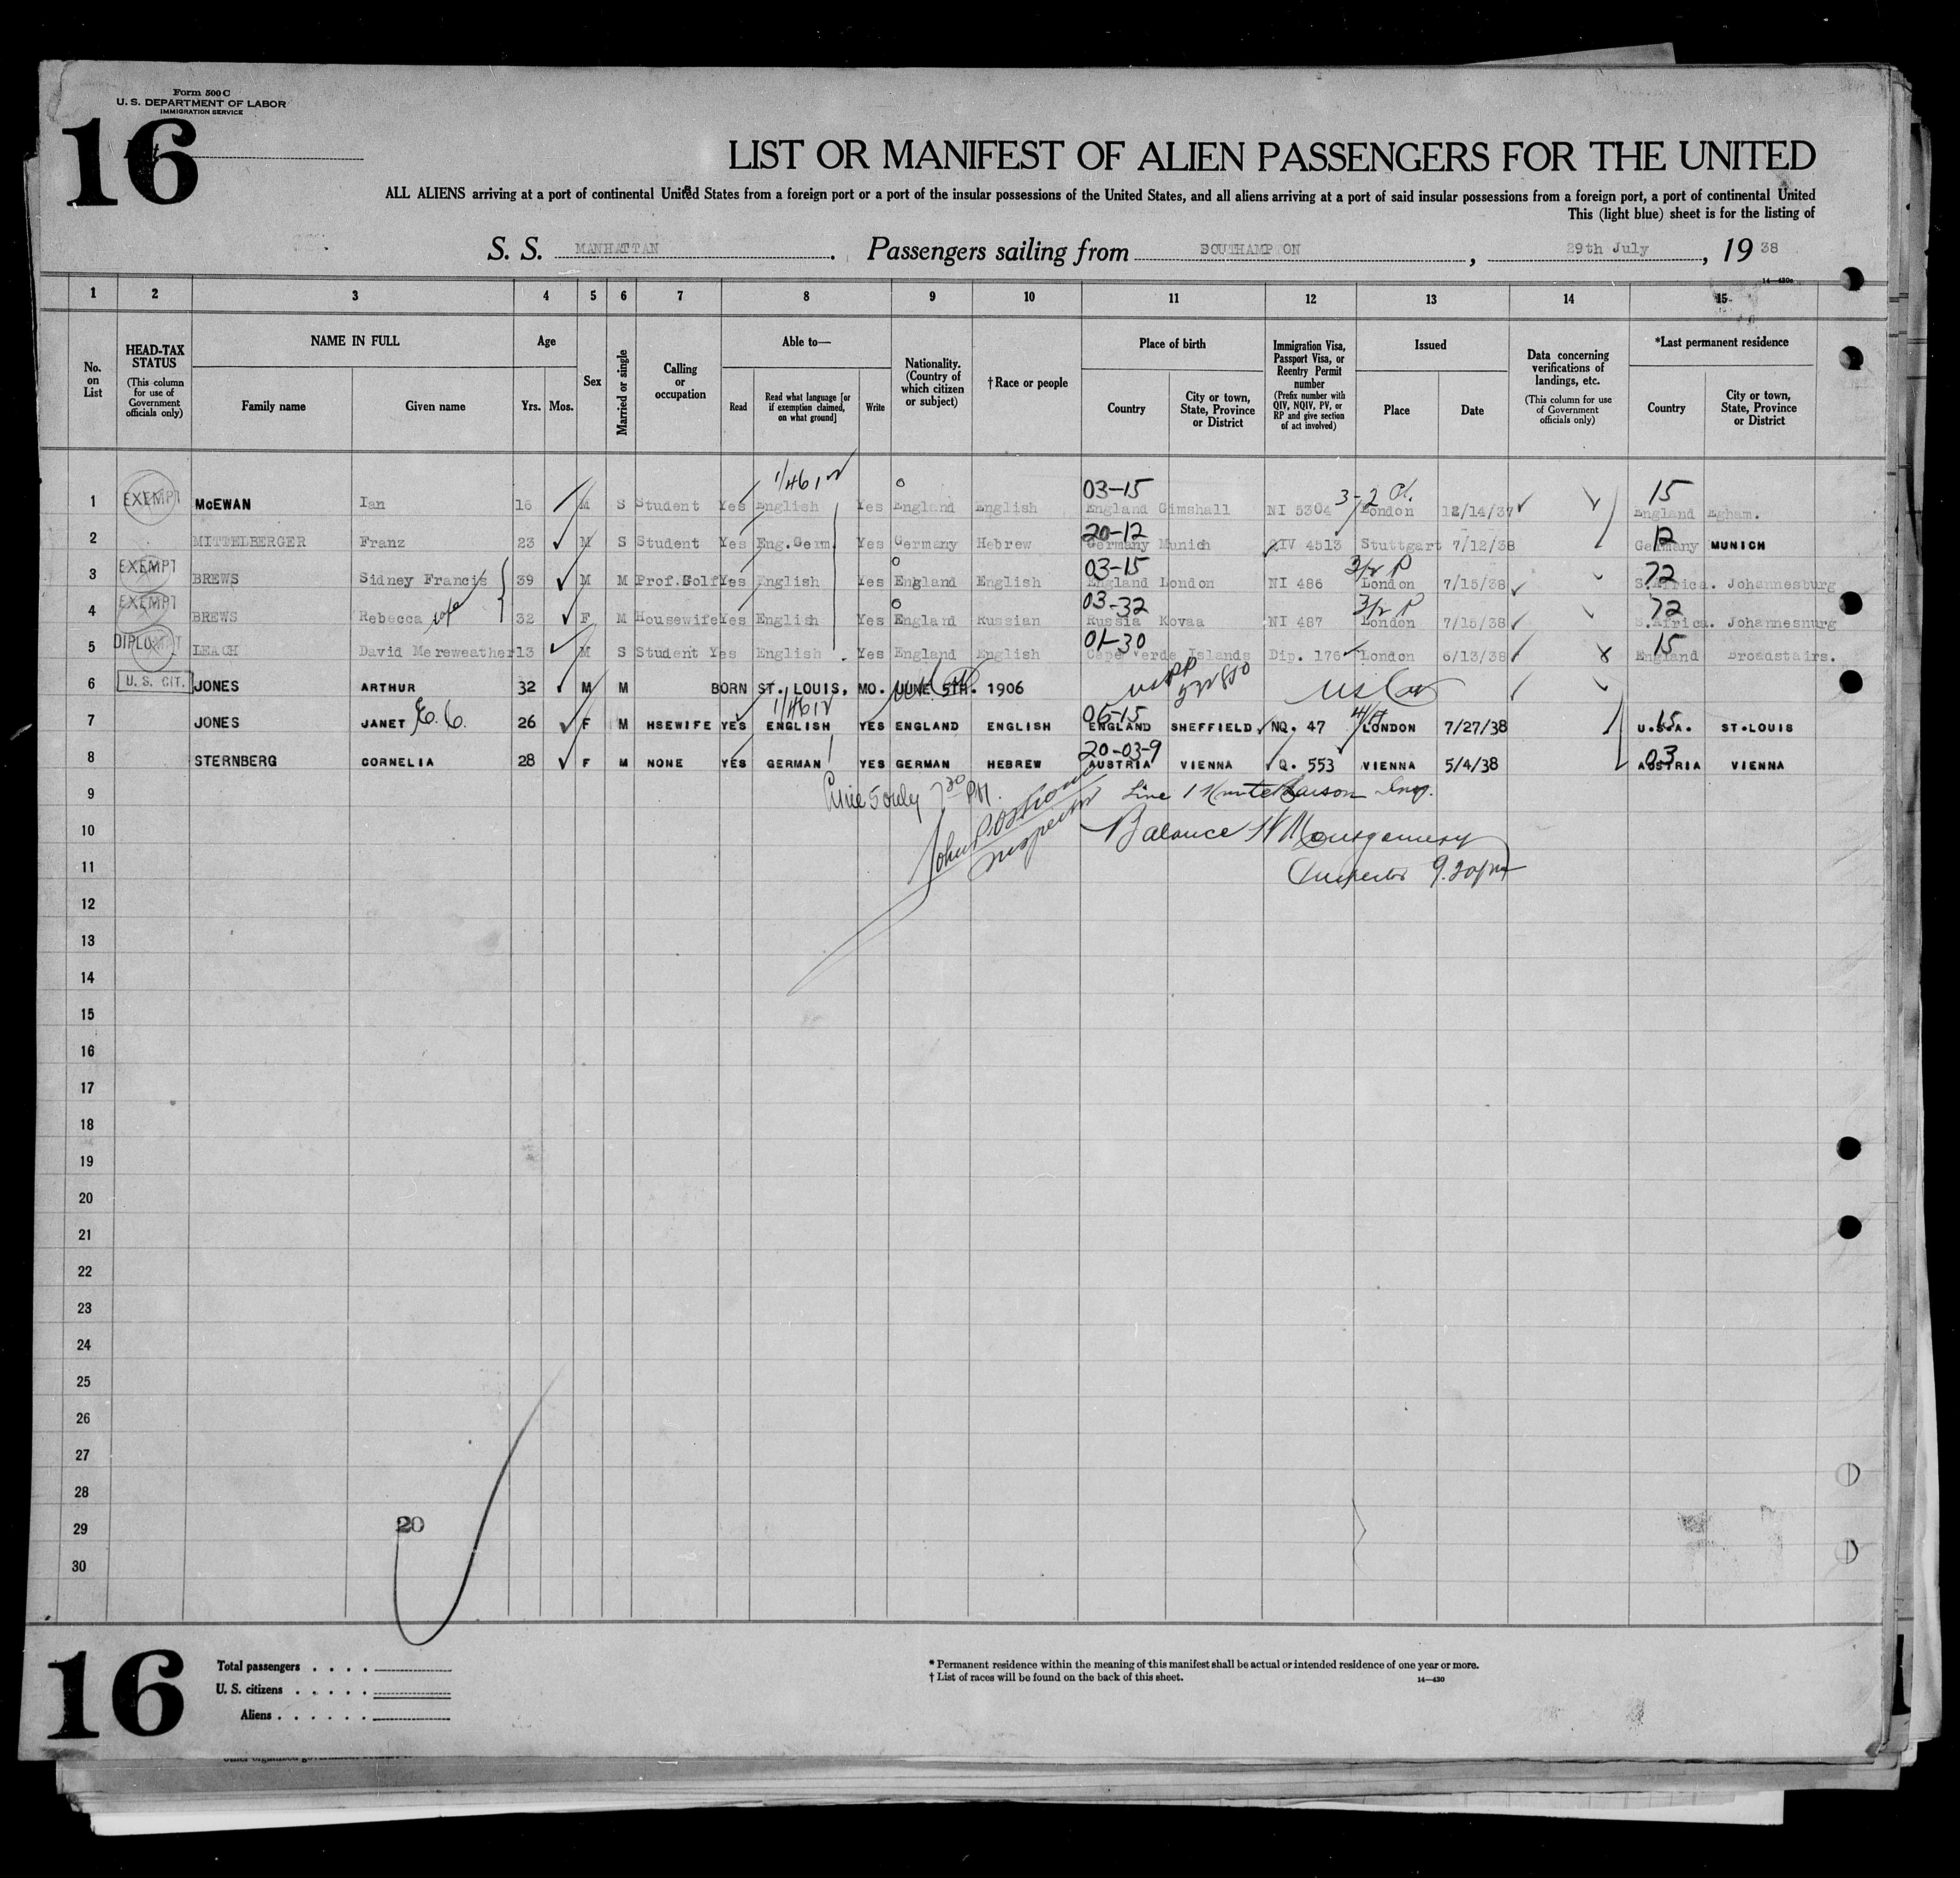 Form 500 C
U. S. DEPARTMENT OF LABOR
IMMIGRATION SERVICE
16
LIST OR MANIFEST OF ALIEN PASSENGERS FOR THE UNITED
ALL ALIENS arriving at a port of continental United States from a foreign port or a port of the insular possessions of the United States, and all aliens arriving at a port of said insular possessions from a foreign port, a port of continental United
This (light blue) sheet is for the listing of
S. S. MANHATTAN. Passengers sailing from SOUTHAMPTON, 29th July, 19 38
14—430c
1 2 3 4 5 6 7 8 9 10 11 12 13 14 15
No. on List
HEAD-TAX STATUS (This column for use of Government officials only)
NAME IN FULL Family name Given name
Age Yrs. Mos.
Sex
Married or single
Calling or occupation
Able to— Read Read what language [or if exemption claimed, on what ground] Write
Nationality. (Country of which citizen or subject)
†Race or people
Place of birth Country City or town, State, Province or District
Immigration Visa, Passport Visa, or Reentry Permit number (Prefix number with QIV, NQIV, PV, or RP and give section of act involved)
Issued Place Date
Data concerning verifications of landings, etc. (This column for use of Government officials only)
*Last permanent residence Country City or town, State, Province or District
03-15 3-2 15
1 EXEMPT McEWAN Ian 16 M S Student Yes English Yes England English England Gimshall NI 5304 London 12/14/37 England Egham.
20-12 12
2 MITTELBERGER Franz 23 M S Student Yes Eng.Germ. Yes Germany Hebrew Germany Munich QIV 4513 Stuttgart 7/12/38 Germany MUNICH
03-15 3/2 P 72
3 EXEMPT BREWS Sidney Francis 39 M M Prof.Golf Yes English Yes England English England London NI 486 London 7/15/38 S.Africa. Johannesburg
03-32 3/2 P 72
4 EXEMPT BREWS Rebecca wife 32 F M Housewife Yes English Yes England Russian Russia Kovaa NI 487 London 7/15/38 S.Africa. Johannesnurg
01-30 15
5 DIPLOMAT LEACH David Mereweather 13 M S Student Yes English Yes England English Cape Verde Islands Dip. 176 London 6/13/38 England Broadstairs.
6 U. S. CIT. JONES ARTHUR 32 M M BORN ST. LOUIS, MO. JUNE 5TH. 1906
06-15 15
7 JONES JANET E. C. 26 F M HSEWIFE YES ENGLISH YES ENGLAND ENGLISH ENGLAND SHEFFIELD NQ. 47 LONDON 7/27/38 U.S.A. ST.LOUIS
20-03-9 03
8 STERNBERG CORNELIA 28 F M NONE YES GERMAN YES GERMAN HEBREW AUSTRIA VIENNA Q. 553 VIENNA 5/4/38 AUSTRIA VIENNA
9 Line 5 only 7 30 PM. Line 1
10 Inspector Balance H Montgomery
11 Inspector 9.20pm
12
13
14
15
16
17
18
19
20
21
22
23
24
25
26
27
28
29 20
30
16
Total passengers
U. S. citizens
Aliens
* Permanent residence within the meaning of this manifest shall be actual or intended residence of one year or more.
† List of races will be found on the back of this sheet.
14—430